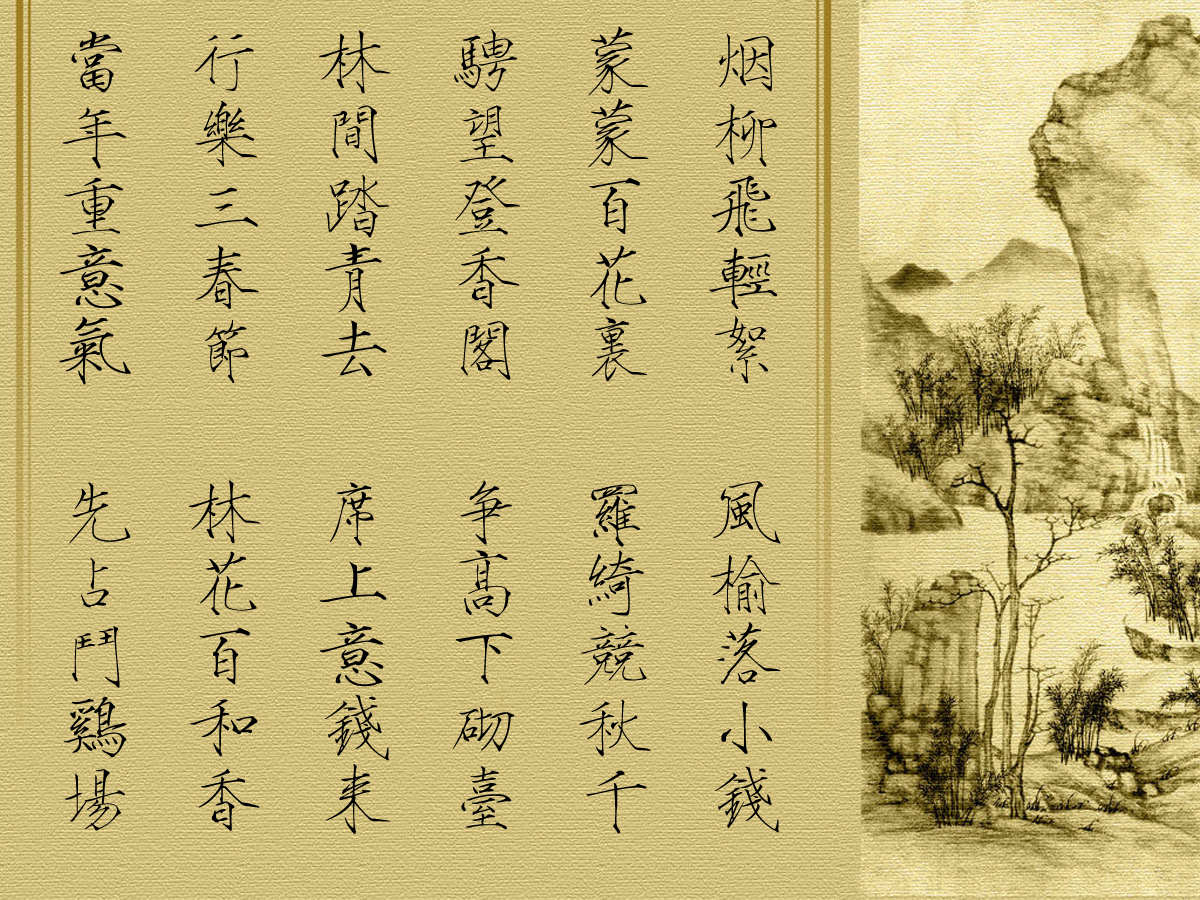 烟柳飛輕絮
風榆落小錢
蒙蒙百花裏
羅綺競秋千
騁望登香閣
争高下砌臺
林間踏青去
席上意錢来
行樂三春節
林花百和香
當年重意氣
先占鬥鷄場